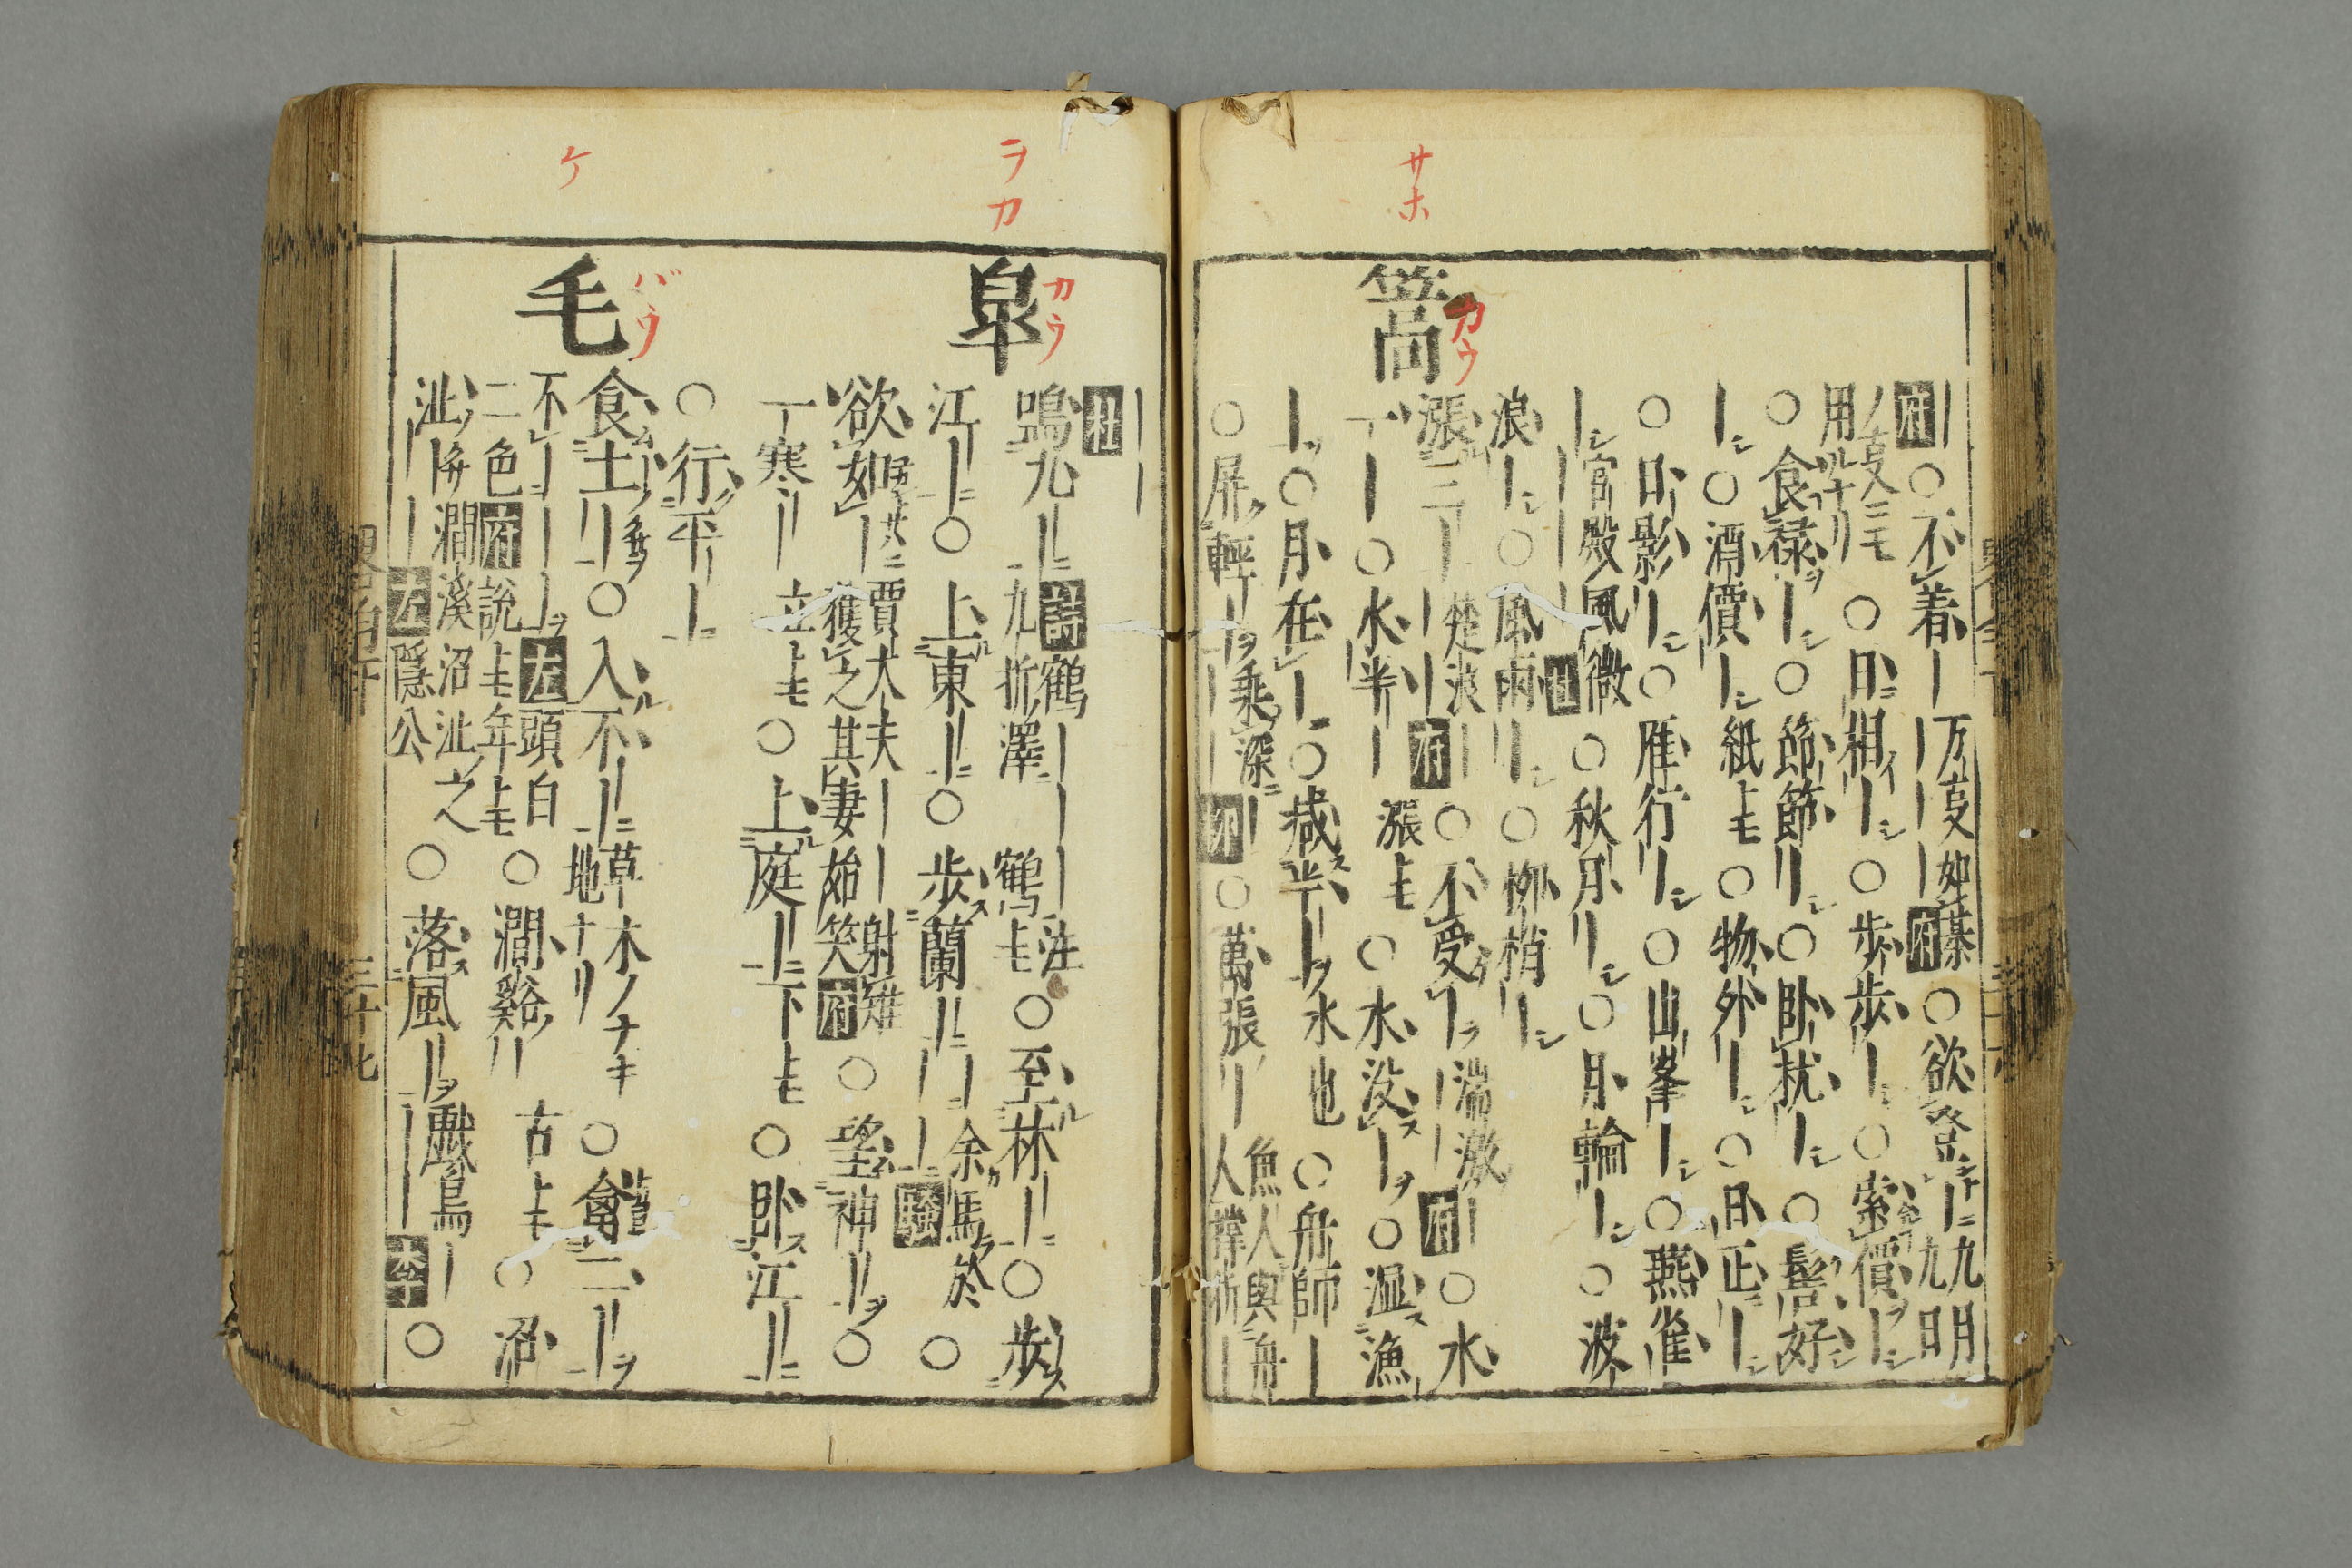 サホ
｜府○不着｜万叓如棊｜｜｜府○欲登｜九明九日月
ノ叓ニモ用ルナリ○日相｜○歩歩｜○索價｜
○食禄｜○節節｜○臥枕｜○髻好
｜○酒價｜紙上モ○物外｜○日正｜
○日影｜○雁行｜○山峯｜○燕雀
｜宮殿風微｜｜｜○秋月｜○月輪｜○波
浪｜○風雨｜○柳梢｜
篙
カウ
漲二｜楚浪｜｜｜府○不受｜湍激｜｜｜府○水
｜○水半｜漲上モ○水没｜○湿漁
｜○月在｜○減半｜水也○舟師｜
○屏輕｜乗深｜｜｜○萬張｜魚人與舟人撑折｜
ヲカ
ケ
｜｜
皐
カウ
鳴九｜詩鶴｜｜｜注九折澤鶴上モ○至林｜○歩
江｜○上東｜○歩蘭｜｜余馬於｜｜騒○
欲如｜賈大夫｜｜射雉獲之其妻始笑府○望神｜○
丁寒｜立上モ○上庭｜下上モ○臥江｜
○行平｜
毛
バウ
食土｜○入不｜草木ノナキ地ナリ○禽二｜
不｜｜｜左頭白二色府説上モ年上モ○澗谿｜古上モ○沼
沚｜澗溪沼沚之｜｜左隠公○落風｜戯鳥｜｜｜○
三十七